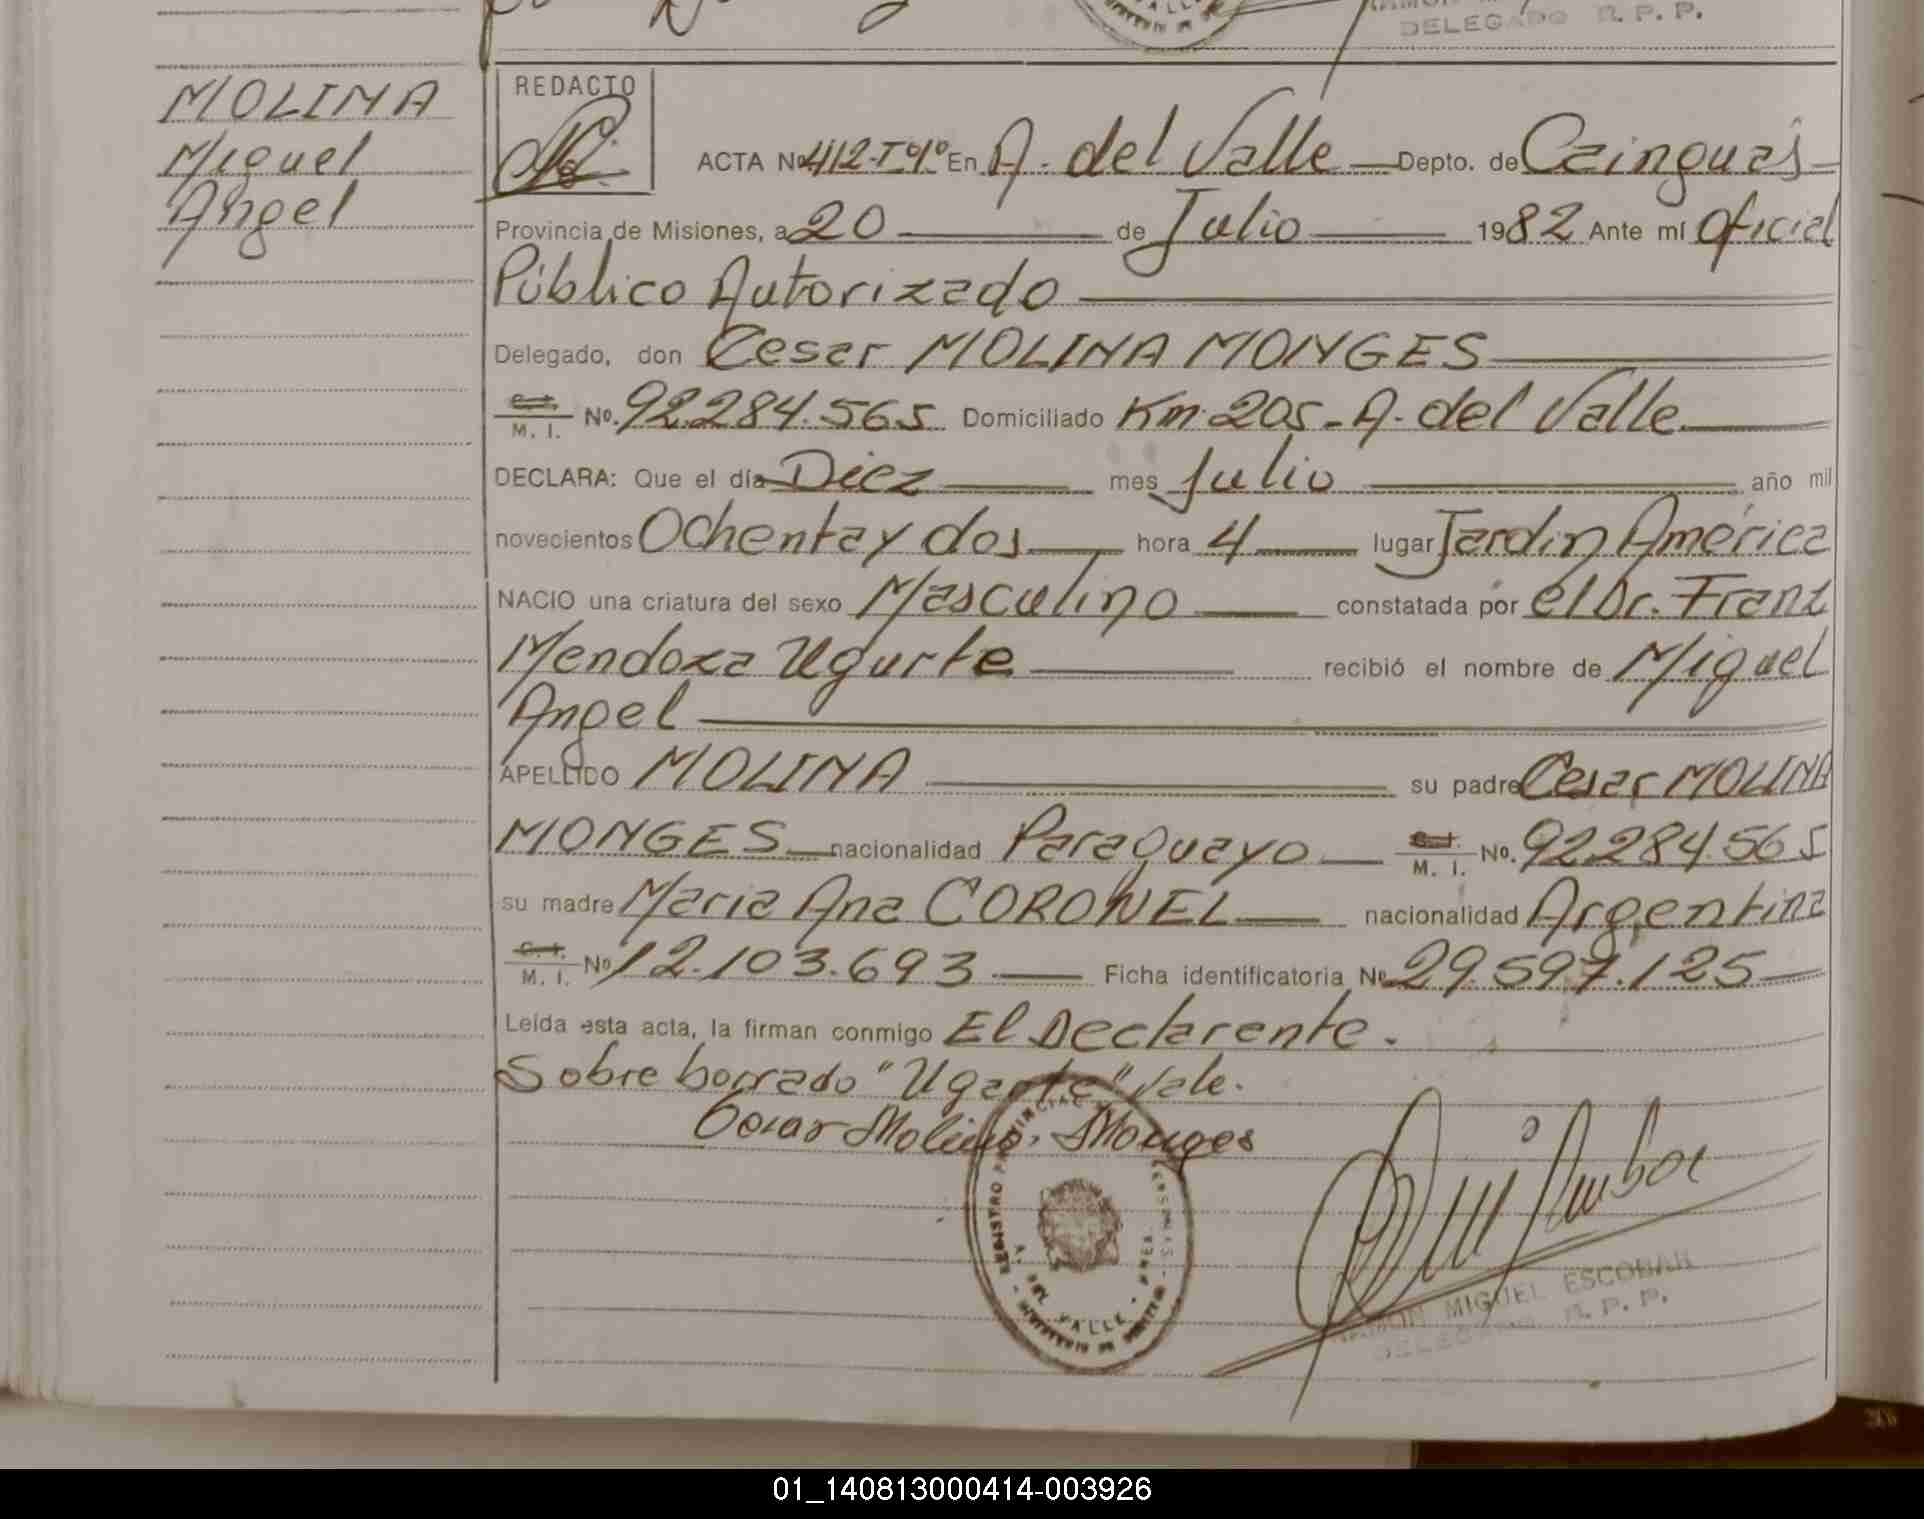 DELEGADO R. P. P.
MOLINA
Miguel
Angel
REDACTO
ACTA Nº 412-Tº1º En A. del Valle Depto. de Cainguás
Provincia de Misiones, a 20 de Julio 1982 Ante mí Oficial
Público Autorizado
Delegado, don Cesar MOLINA MONGES
M. I. Nº. 92.284.565 Domiciliado Km. 205 - A. del Valle
DECLARA: Que el día Diez mes Julio año mil
novecientos Ochenta y dos hora 4 lugar Jardín América
NACIO una criatura del sexo Masculino constatada por el Dr. Franz
Mendoza Ugarte recibió el nombre de Miguel
Angel
APELLIDO MOLINA su padre Cesar MOLINA
MONGES nacionalidad Paraguayo M. I. Nº. 92.284.565
su madre Maria Ana CORONEL nacionalidad Argentina
M. I. Nº 12.103.693 Ficha identificatoria Nº 29.597.125
Leída esta acta, la firman conmigo El Declarente.
Sobre borrado "Ugarte" Vale.
Cesar Molina Monges
REGISTRO PROVINCIAL
A. DEL VALLE
RAMON MIGUEL ESCOBAR
DELEGADO R. P. P.
01_140813000414-003926